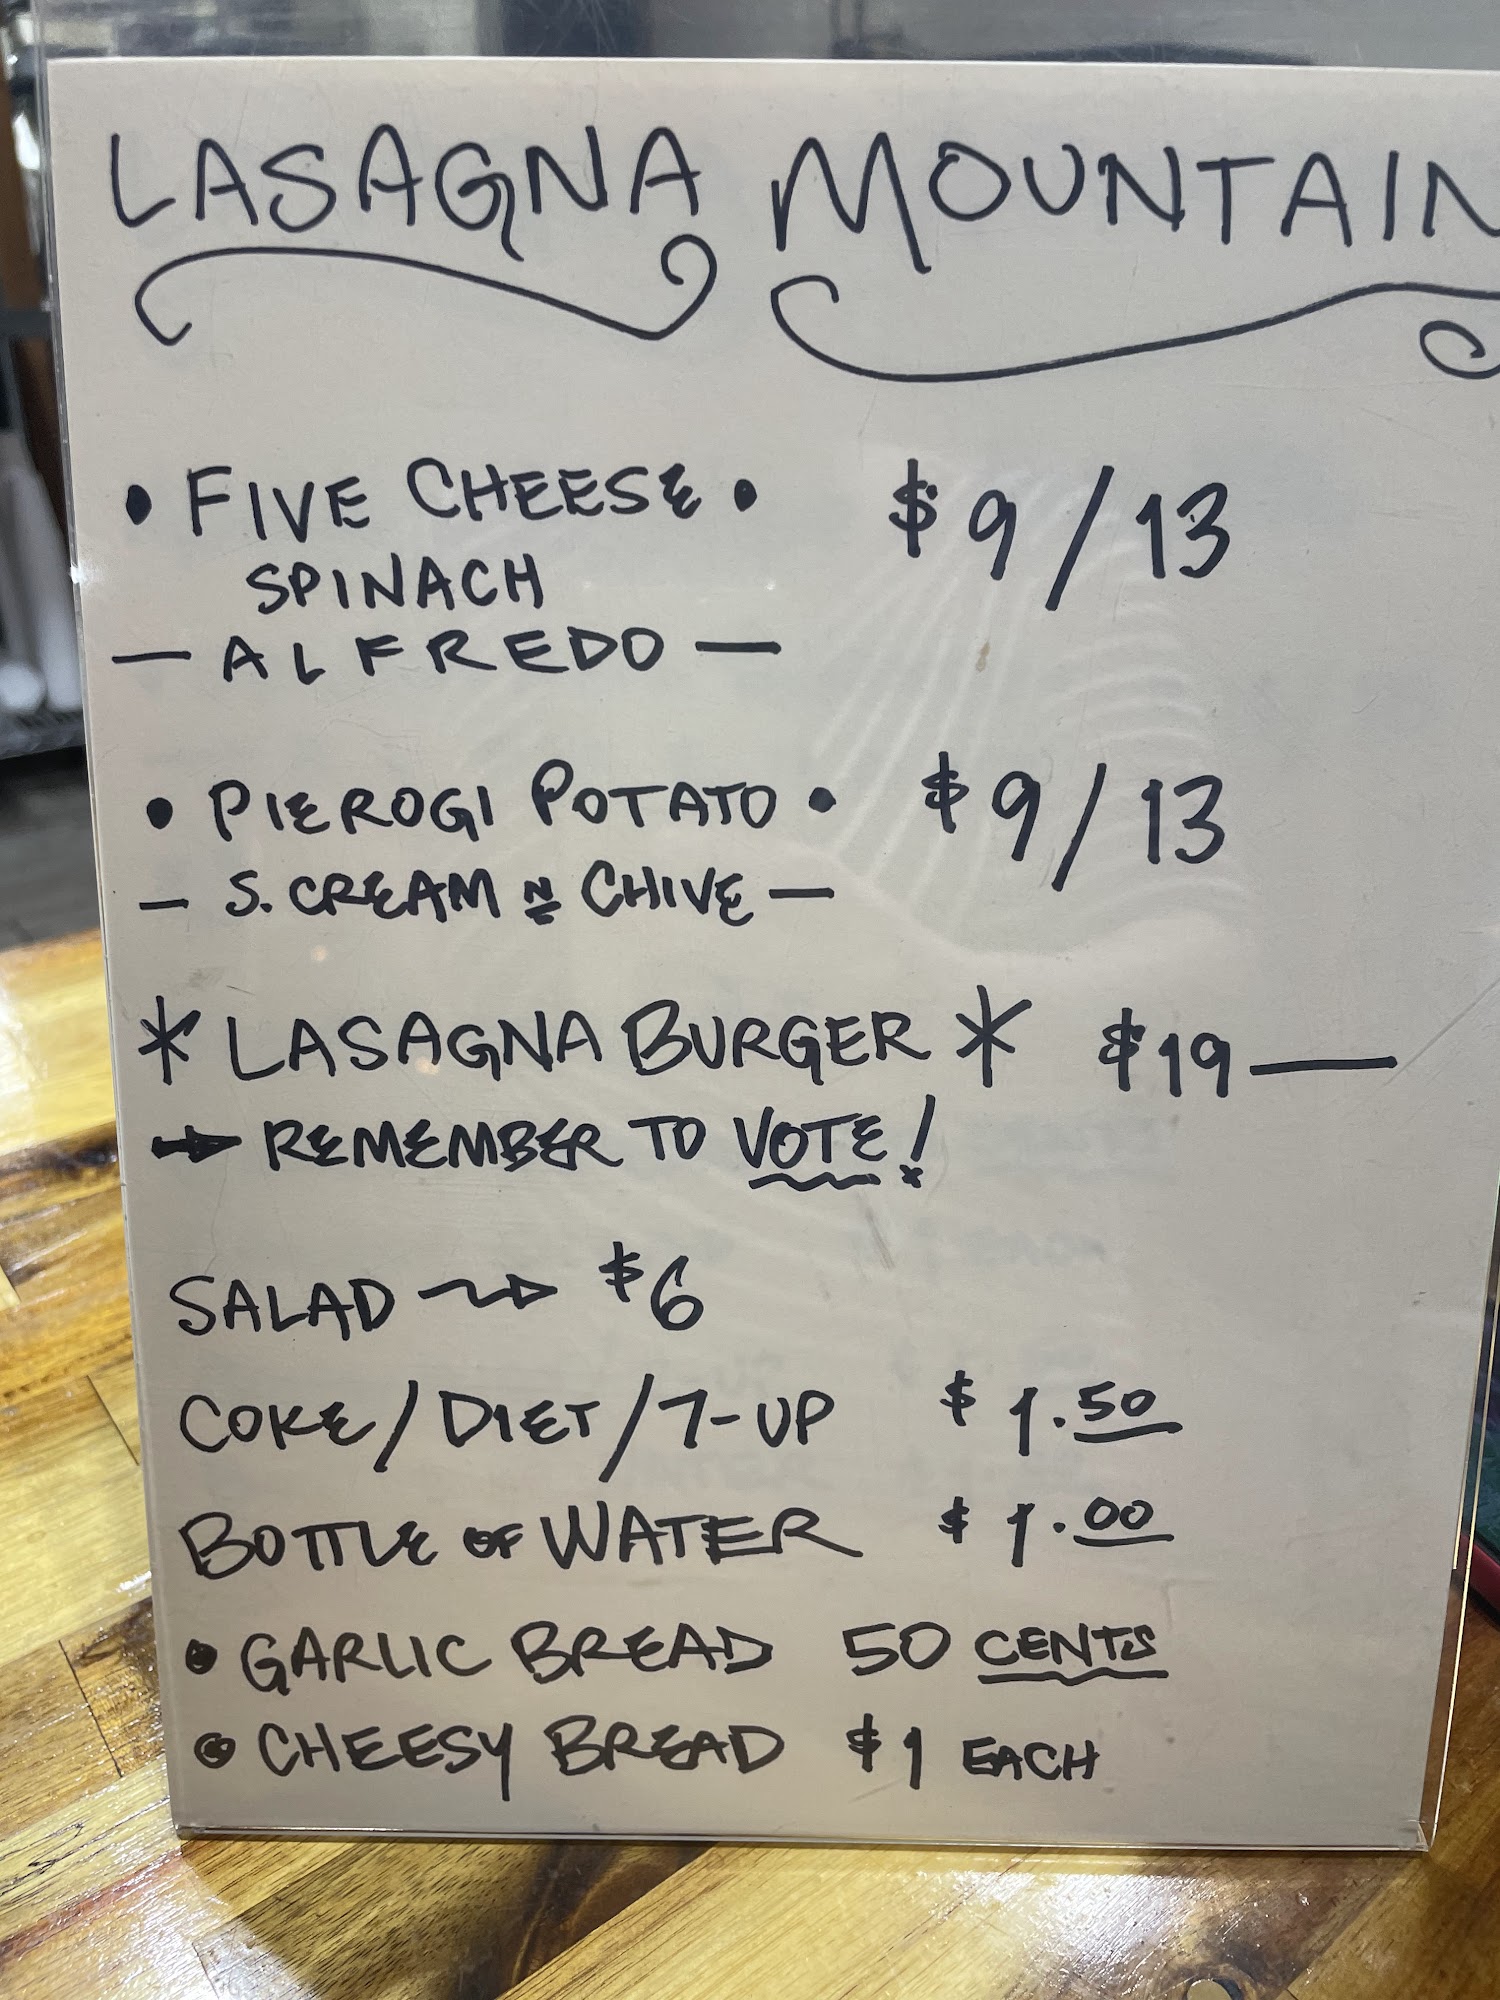 LASAGNA MOUNTAIN
• FIVE CHEESE • $9/13
SPINACH
— ALFREDO —
• PIEROGI POTATO • $9/13
— S. CREAM N CHIVE —
* LASAGNA BURGER * $19—
→ REMEMBER TO VOTE!
SALAD → $6
COKE/DIET/7-UP $1.50
BOTTLE OF WATER $1.00
• GARLIC BREAD 50 CENTS
• CHEESY BREAD $1 EACH